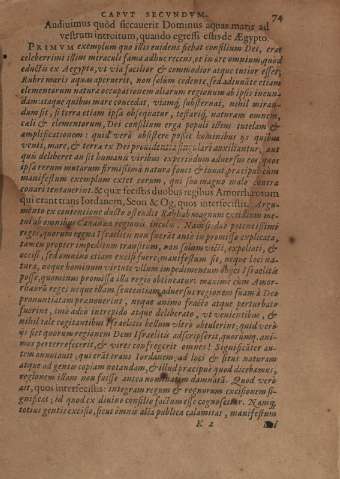 CAPVT SECVNDVM. 74
Audiuimus quòd siccauerit Dominus aquas maris ad
vestrum introitum, quando egressi estis de Ægypto.
PRIMVM exemplum quo illis euidens fiebat consilium Dei, erat
celeberrimi illius miraculi fama adhuc recens, et in ore omnium, quod
eductis ex Aegypto, vt via facilior & commodior atque tutior esset,
Rubri maris aquæ aperuerint, non solum cedente, sed adiuuante etiam
elementorum natura occupationem aliarum regionum ab ipsis ineun-
dam: ataque quibus mare concedat, viamq; substernat, nihil miran-
dum sit, si terra etiam ipsa obsequatur, testariq; naturam omnem,
cæli & elementorum, Dei consilium erga populi illius tutelam &
amplificationem: quid verò obsistere possit hominibus
venti, mare, & terra ex Dei prouidentia auxiliantur, aut
quid deliberet an sit humanis viribus experiundum aduersus eos, quos
ipsa rerum mutarum firmissima natura fouet & iuuat præcipuè cum
manifestum exemplum extet eorum, qui suo magno malo contra
conari tentauerint. & quæ feceritis duobus regibus Amorrhæorum
qui erant trans Iordanem, Seon & Og, quos interfecistis. Argu-
mento ex contentione ducto ostendit Rahhab magnum excidium ime-
ni ab omnibus Cananææ regionis incolis. Nam si duo potentissimi
reges, quorum regna Israelitis non fuerāt ante in promissa explicata,
tamen propter impeditum transitum, non solum victi, expulsi, &
occisi, sed omnino etiam excisi fuere; manifestum sit, neque loci na-
tura, neque hominum virtute vllum impedimentum obijci Israelitis
posse, quominus promissa illa regio obtineatur: maxime cum Amor-
rhæorū reges neque illam sententiam aduersus regionem suam à Deo
pronuntiatam præuouerint, neque animo fracto atque perturbato
fuerint, imò adeò intrepido atque deliberato, vt venientibus, &
nihil tale cogitantibus Israelitis bellum vltrò obtulerint: quid verò
vt fiet quorum regionem Deus Israelitis adscripserit, quorumq; ani-
mos perterrefecerit, & vires confregerit omnes? Significāter au-
tem annotauit, qui erāt trans Iordanem, ad loci & situs naturam
atque ad gentis copiam notandam, & illud præcipuè quod dicebamus,
regionem illam non fuisse antea nominatim damnatā. Quod verò
ait, quos interfecistis: integram regum & regnorum excisionem si-
gnificat; id quod ex diuino consilio factum esse cognoscitur. Namq;
totius gentis excisio, sicut omnis alia publica calamitas, manifestum
K 2